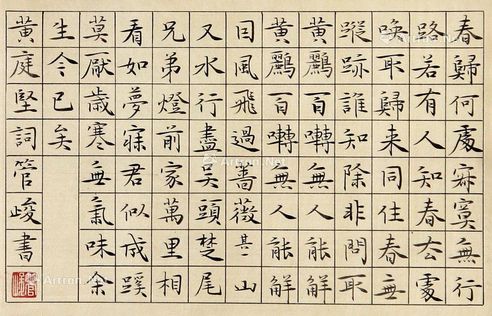 春歸何處寂寞無行
路若有人知春去處
喚取歸来同住春無
蹤跡誰知除非問取
黄鸝百囀無人能解
黄鸝百囀無人能解
囙風飛過薔薇其二山
又水行盡吴頭楚尾
兄弟燈前家萬里相
看如夢寐君似成蹊
莫厭歲寒無氣味余
生今已矣
黄庭堅詞管峻書
Artron.Net